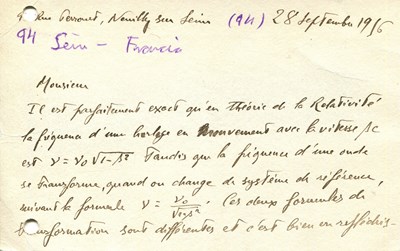 Rue Perronet, Neuilly sur Seine (94) 28 septembre 1956
94 Sein - Francia
Monsieur
Il est parfaitement exact qu'en théorie de la Relativité
la fréquence d'une horloge en mouvement avec la vitesse βc
est ν = ν₀ √1-β² tandis que la fréquence d'une onde
se transforme, quand on change de système de référence,
suivant la formule ν = ν₀/√1-β². Ces deux formules de
transformation sont différentes et c'est bien en réfléchis-